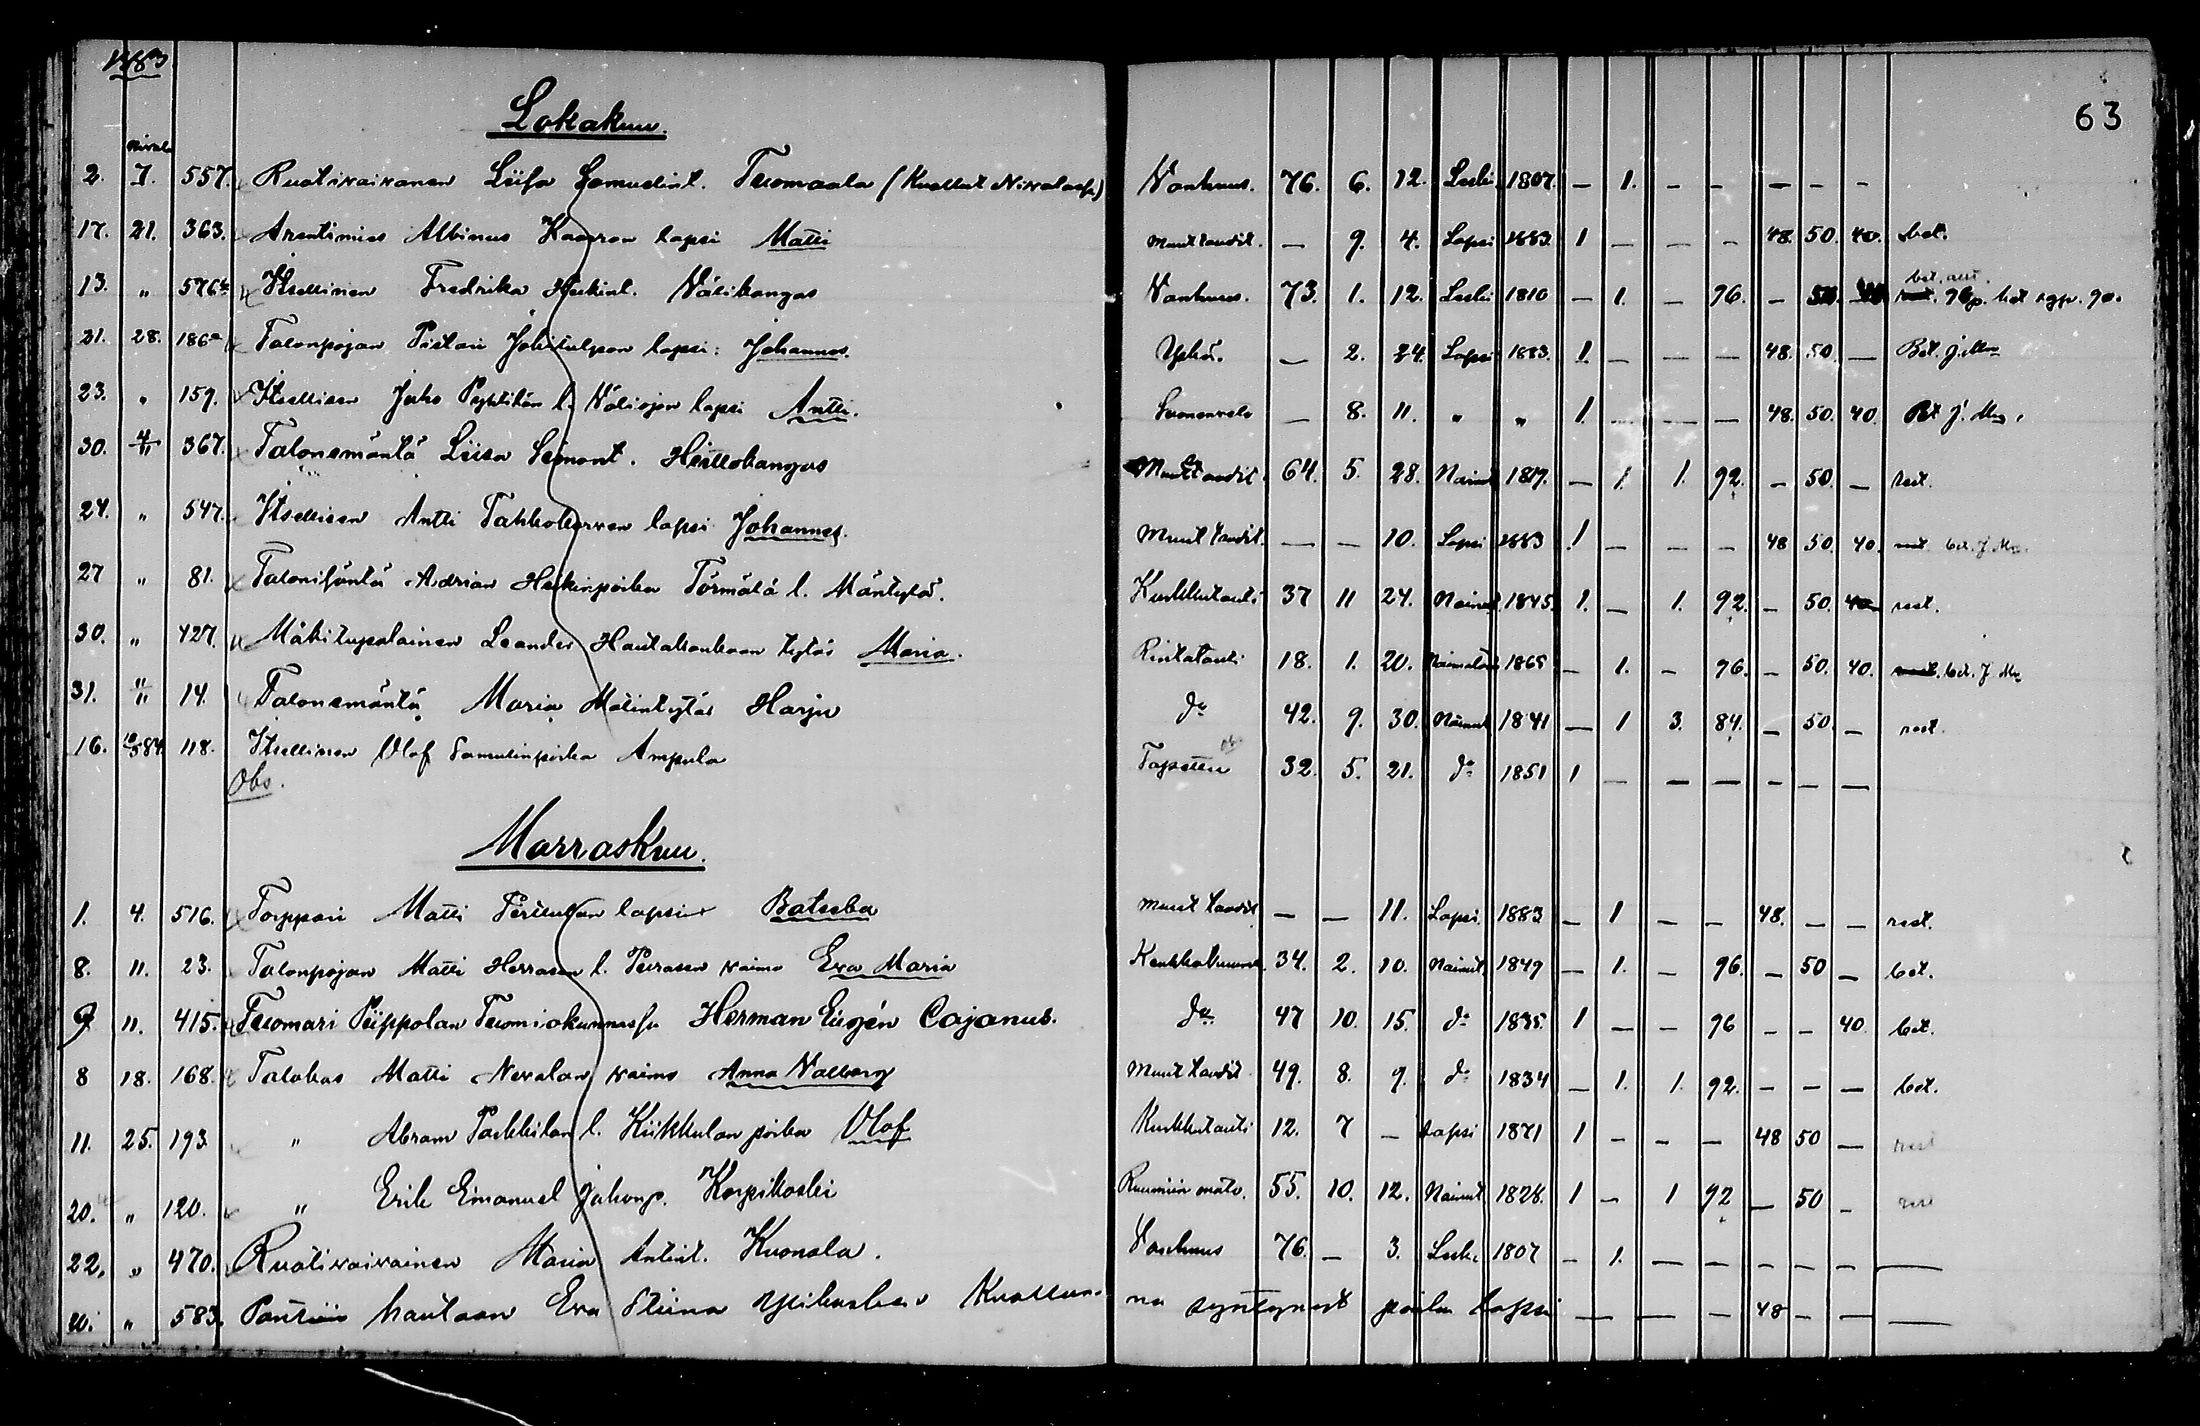 1883
63
Lokakuu.
2. 7. 557. Ruotivaivanen Liisa Samulint. Tuomaala (Kuollut Nivalassa) Vanhuus. 76. 6. 12. Leski 1807. — 1. — — — — —
17. 21. 363. Albinus lapsi Matti Muut taudit. — 9. 4. Lapsi 1883. 1 — — — 48. 50. 40. bet.
13. " 576 Itsellinen Fredrika Heikint. Välikangas Vanhuus. 73. 1. 12. Leski 1810 — 1. — 96. —
21. 28. 186 Talonpojan lapsi: Johannes. — 2. 24. Lapsi 1883. 1. — — — 48. 50. — Bet.
23. " 159. Itsellisen Juho l. Väliojan lapsi Antti. — 8. 11. " " 1. — — — 48. 50. 40. Bet J.
30. 4/11 367. Talonemäntä Liisa Simont. Heillokangas Muut taudit. 64. 5. 28. Nainut — 1. 1. 92. — 50. — rest.
24. " 547. Itsellisen Antti lapsi Johannes. Muut taudit. — — 10. Lapsi 1883 1 — — — 48 50. 40. bet. J
27 " 81. Talonisäntä Adrian Heikinpoika Törmälä l. Mäntylä. Keuhkotauti 37 11 24. Nainut 1845. 1. — 1. 92. — 50. 40 rest.
30. " 427. Mäkitupalainen Leander Hautakankaan tytär Maria. Rintatauti 18. 1. 20. Naimaton 1865 — 1. — 96. — 50. 40. bet. J
31. 11/11 14. Talonemäntä Maria Matintytär Harju do 42. 9. 30. Nainut 1841 — 1 3. 84. — 50. — rest.
16. 118. Itsellinen Olof Samulinpoika Ampula 32. 5. 21. do 1851 1 — — — — — —
Obs.
Marraskuu.
1. 4. 516. Torppari Matti lapsi Batseba Muut taudit — — 11. Lapsi 1883 — 1 — — 48. — — rest.
8. 11. 23. Talonpojan Matti Herrasen l. vaimo Eva Maria 34. 2. 10. Nainut 1849 — 1. — 96. — 50 — bet.
9. 11. 415. Tuomari Piippolan Tuomiokunnassa Herman Eugén Cajanus. do 47 10. 15. do 1835. 1 — — 96 — — 40. bet.
8 18. 168. Talokas Matti Nevalan vaimo Anna Valborg Muut taudit 49. 8. 9. do 1834 — 1. 1. 92. — — — bet.
11. 25. 193. " Abram l. Kiikkulan poika Olof Keuhkotauti 12. 7 — Lapsi 1871 1 — — — 48 50 — rest
20. " 120. " Erik Emanuel Korpikoski 55. 10. 12. Nainut 1828. 1 — 1 92 — 50 — rest
22. " 470. Ruotivaivainen Maria Antint. Kuonala. Vanhuus 76. — 3. Leski 1807 — 1. — — — — —
" 583. hautaan Eva Stiina Kuollu- na syntynyt poika lapsi — — — 48 — —